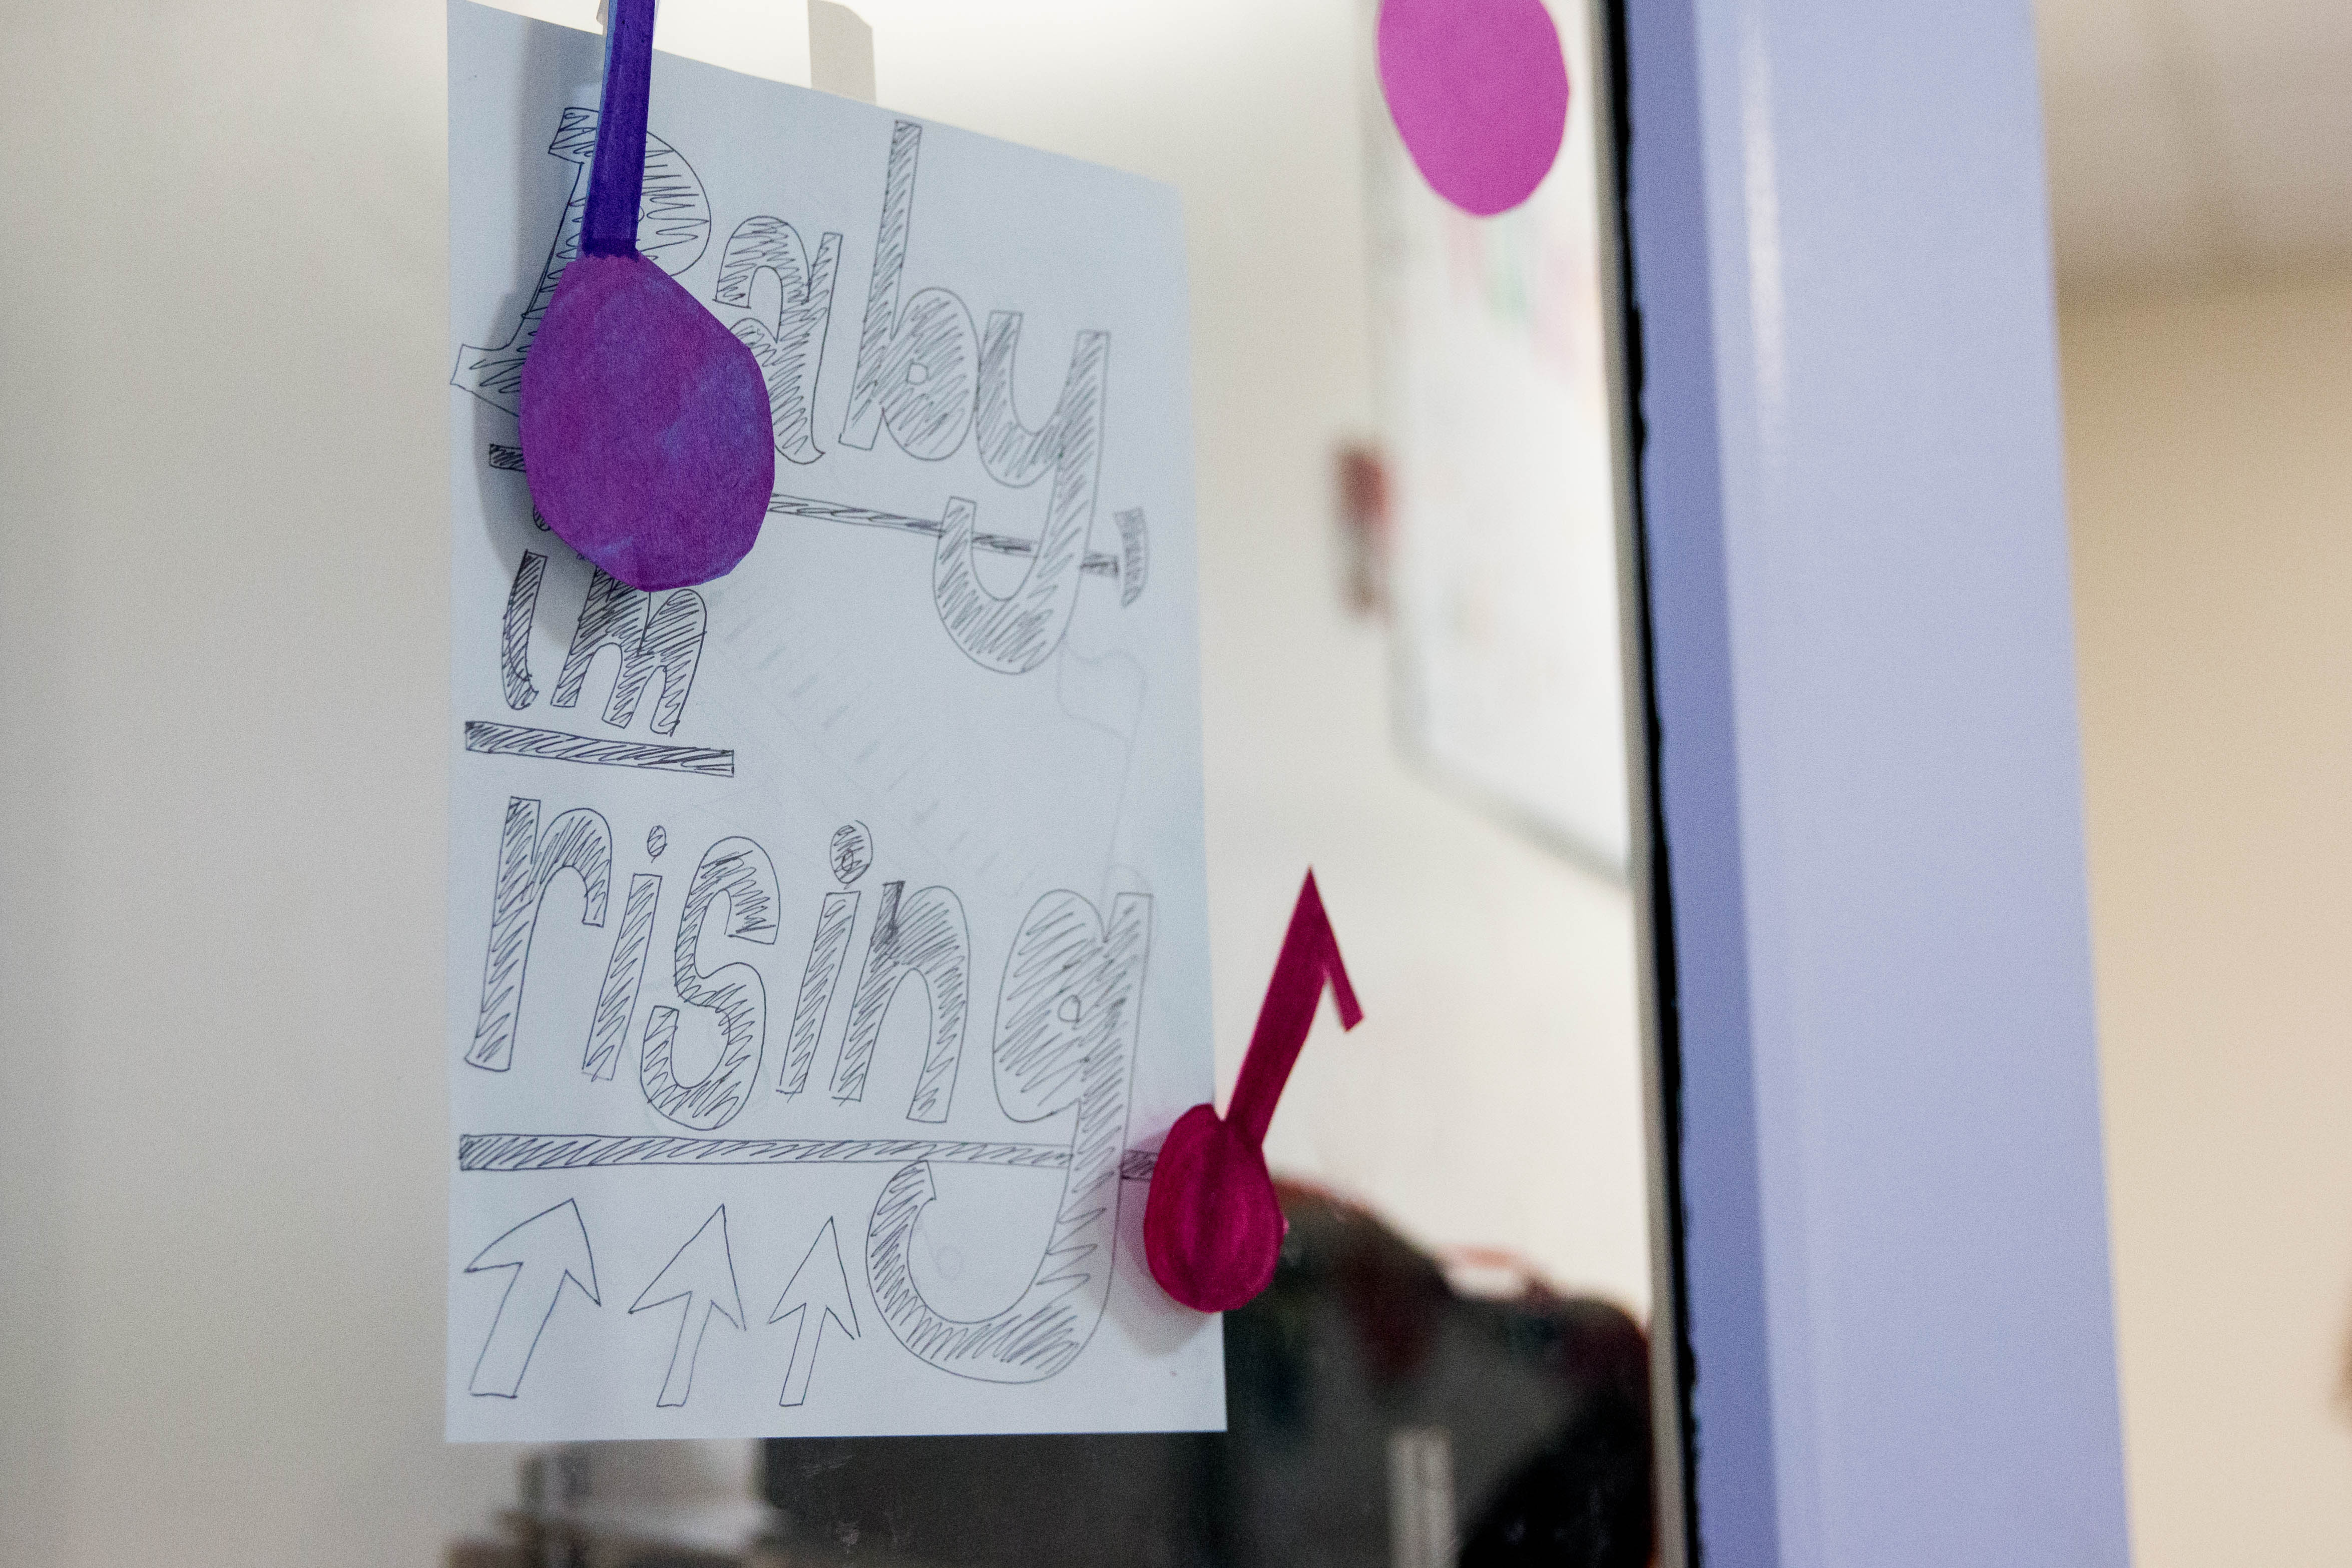 Baby,
im
rising